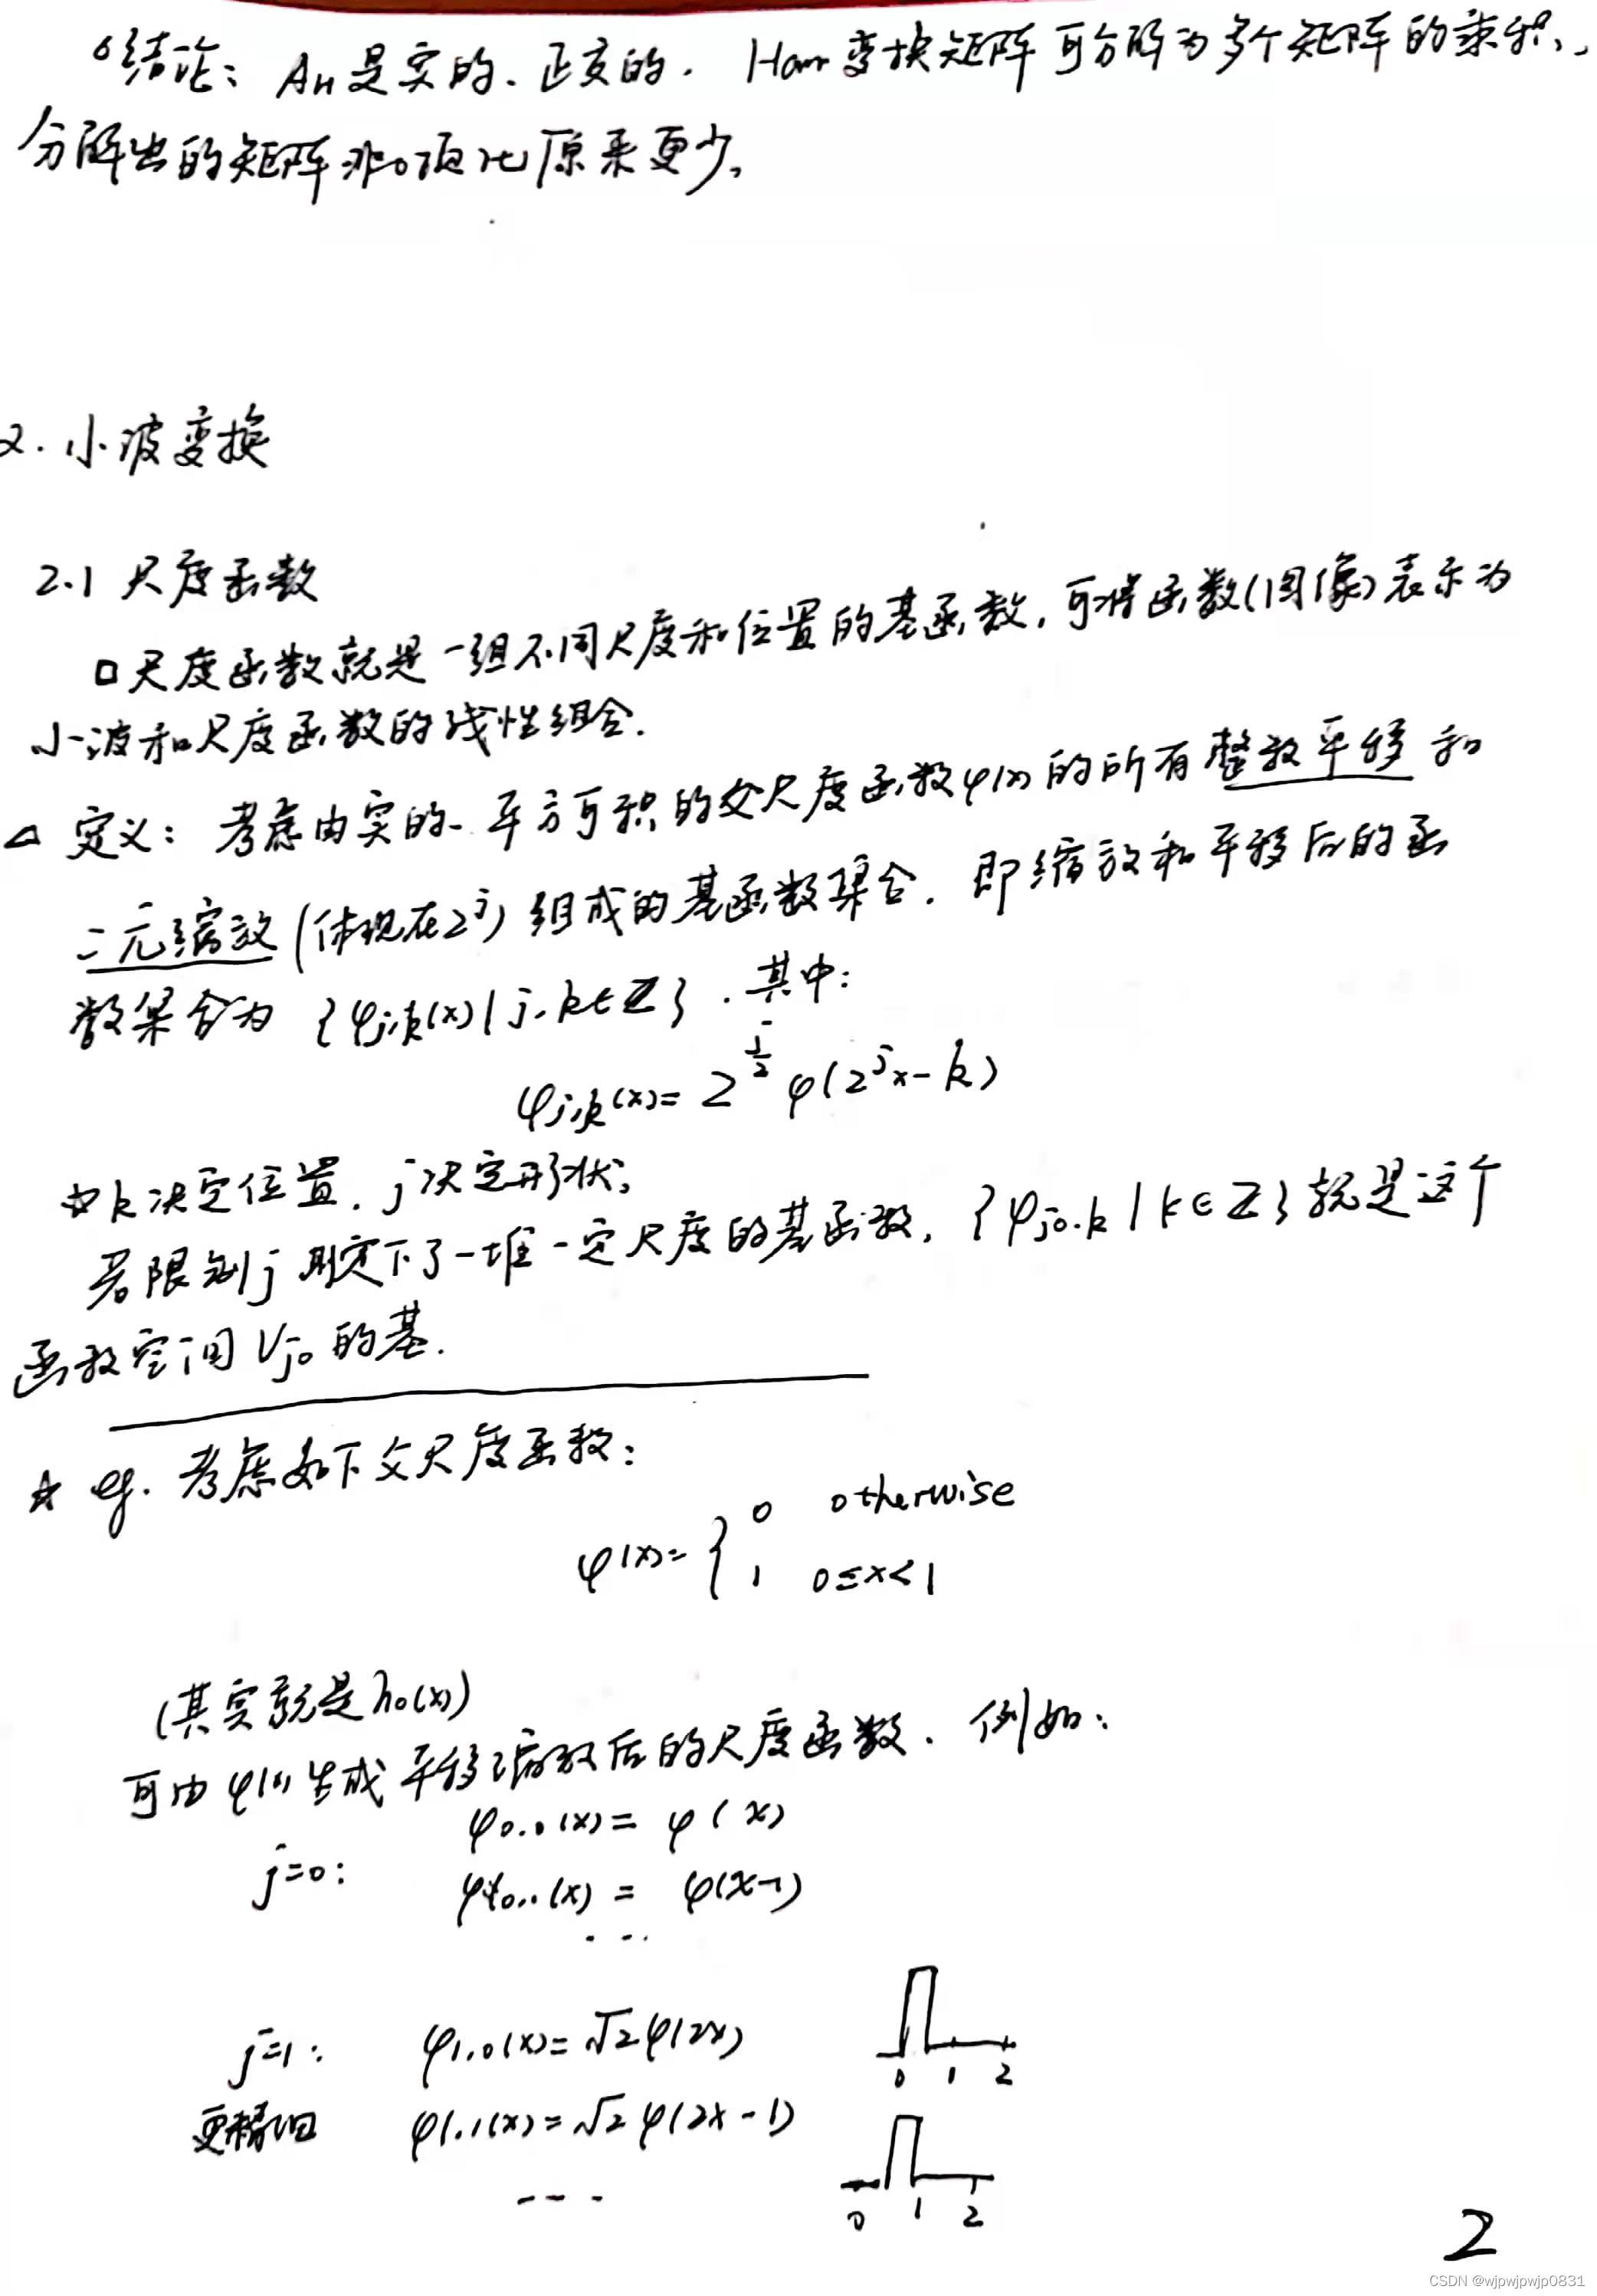 结论：AH是实的、正交的. Haar变换矩阵可分解为多个矩阵的乘积,
分解出的矩阵非0项比原来更少。
2. 小波变换
2.1 尺度函数
□尺度函数就是一组不同尺度和位置的基函数, 可将函数(图像)表示为
小波和尺度函数的线性组合.
△ 定义：考虑由实的、平方可积的父尺度函数φ(x)的所有整数平移和
二元缩放(体现在2^j)组成的基函数集合. 即缩放和平移后的函
数集合为 {φj,k(x)|j,k∈Z}. 其中:
φj,k(x)=2^(j/2) φ(2^j x-k)
k决定位置, j决定形状;
若限制j 则定下了一堆一定尺度的基函数, {φj0,k | k∈Z}就是这个
函数空间Vj0的基.
☆ eg. 考虑如下父尺度函数:
φ(x)= { 0 otherwise
1 0≤x<1
(其实就是h0(x))
可由φ(x)生成平移缩放后的尺度函数. 例如:
φ0,0(x)= φ(x)
j=0: φ0,1(x) = φ(x-1)
...
j=1: φ1,0(x)=√2φ(2x)
0 1 2
更精细 φ1,1(x)=√2φ(2x-1)
---
0 1 2
2
CSDN @wjpwjpwjp0831